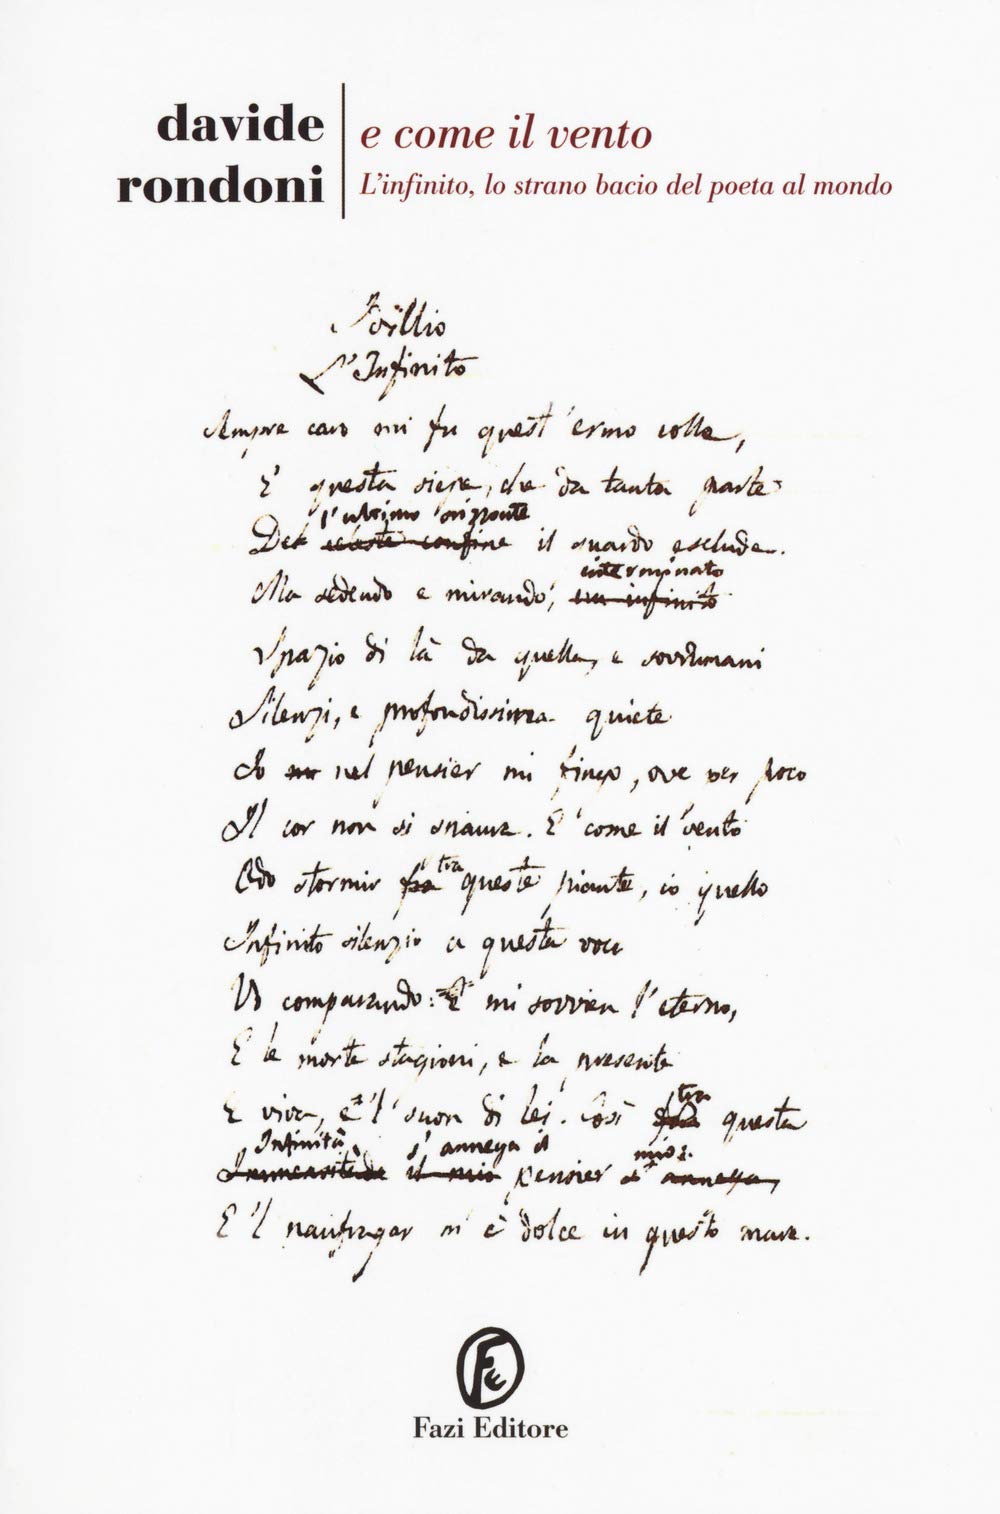 davide
rondoni
e come il vento
L'infinito, lo strano bacio del poeta al mondo
Idillio
L'Infinito
Sempre caro mi fu quest'ermo colle,
E questa siepe, che da tanta parte
l'ultimo orizonte
Del celeste confine il guardo esclude.
interminato
Ma sedendo e mirando, un infinito
Spazio di là da quella, e sovrumani
Silenzi, e profondissima quiete
Io nel pensier mi fingo, ove per poco
Il cor non si spaura. E come il vento
tra
Odo stormir fra queste piante, io quello
Infinito silenzio a questa voce
Vo comparando: E mi sovvien l'eterno,
E le morte stagioni, e la presente
E viva, e 'l suon di lei. Così fra questa
tra
Infinità s'annega il mio:
Immensitade il mio pensier s'annega,
E 'l naufragar m'è dolce in questo mare.
Fe
Fazi Editore